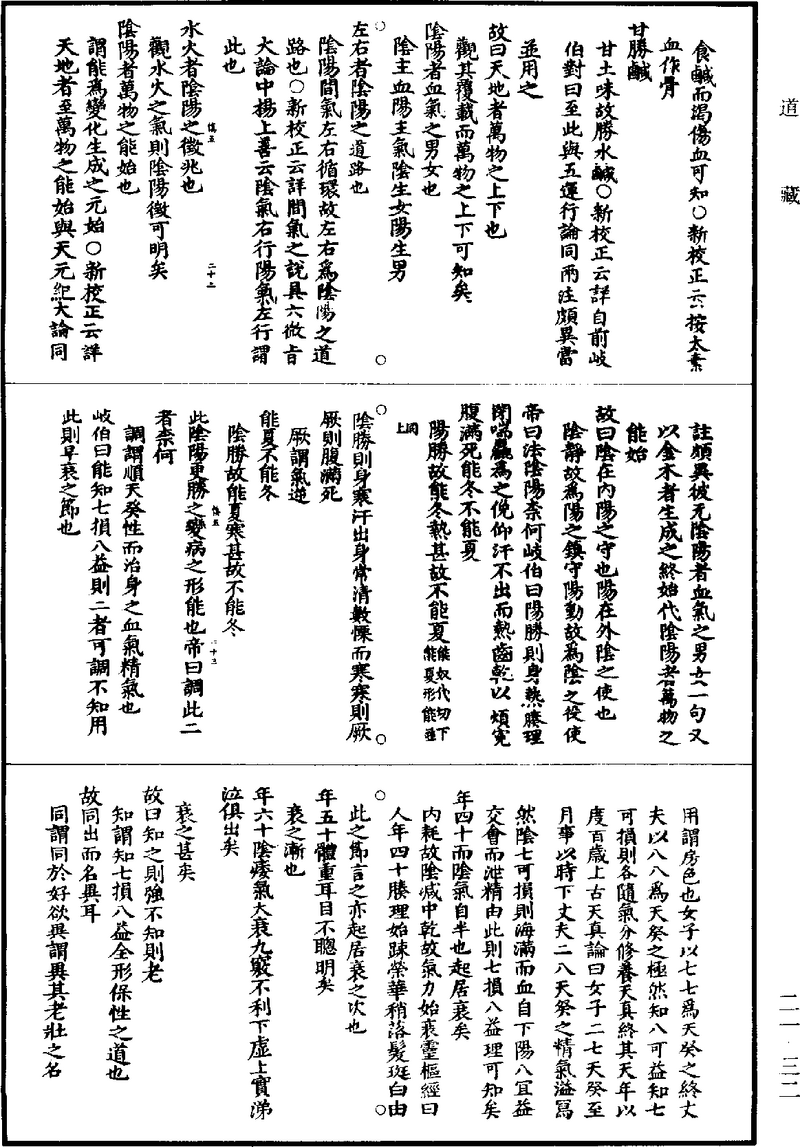 食鹹而渴傷血可知○新校正云按太素
血作骨
甘勝鹹
甘土味故勝水鹹○新校正云詳自前岐
伯對曰至此與五運行論同兩注頗異當
並用之
故曰天地者萬物之上下也
觀其覆載而萬物之上下可知矣
陰陽者血氣之男女也
陰主血陽主氣陰生女陽生男
左右者陰陽之道路也
陰陽間氣左右循環故左右爲陰陽之道
路也○新校正云詳間氣之說具六微旨
大論中楊上善云陰氣右行陽氣左行謂
此也
水火者陰陽之徵兆也
慎五
二十二
觀水火之氣則陰陽徵可明矣
陰陽者萬物之能始也
謂能爲變化生成之元始○新校正云詳
天地者至萬物之能始與天元紀大論同
註頗異彼无陰陽者血氣之男女一句又
以金木者生成之終始代陰陽者萬物之
能始
故曰陰在內陽之守也陽在外陰之使也
陰靜故爲陽之鎮守陽動故爲陰之役使
帝曰法陰陽奈何岐伯曰陽勝則身熱腠理
閉喘麤爲之俛仰汗不出而熱齒乾以煩寃
腹滿死能冬不能夏
陽勝故能冬熱甚故不能夏能奴代切下能夏形能並同上
陰勝則身寒汗出身常清數慄而寒寒則厥
厥則腹滿死
厥謂氣逆
能夏不能冬
陰勝故能夏寒甚故不能冬
慎五
二十三
此陰陽更勝之變病之形能也帝曰調此二
者奈何
調謂順天癸性而治身之血氣精氣也
岐伯曰能知七損八益則二者可調不知用
此則早衰之節也
用謂房色也女子以七七爲天癸之終丈
夫以八八爲天癸之極然知八可益知七
可損則各隨氣分修養天真終其天年以
度百歲上古天真論曰女子二七天癸至
月事以時下丈夫二八天癸之精氣溢寫
然陰七可損則海滿而血自下陽八宜益
交會而泄精由此則七損八益理可知矣
年四十而陰氣自半也起居衰矣
內耗故陰減中乾故氣力始衰靈樞經曰
人年四十腠理始踈榮華稍落髮斑白由
此之節言之亦起居衰之次也
年五十體重耳目不聰明矣
衰之漸也
年六十陰痿氣大衰九竅不利下虛上實涕
泣俱出矣
衰之甚矣
故曰知之則強不知則老
知謂知七損八益全形保性之道也
故同出而名異耳
同謂同於好欲異謂異其老壯之名
道藏
二一·三二